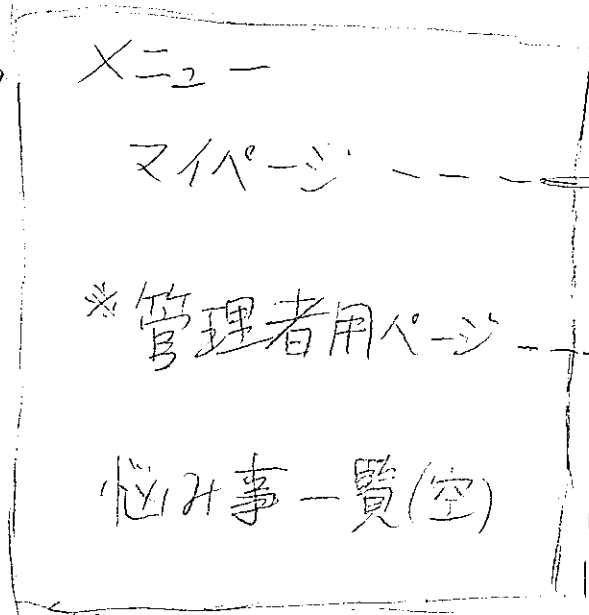 メニュー
マイページ
※管理者用ページ
悩み事一覧(空)